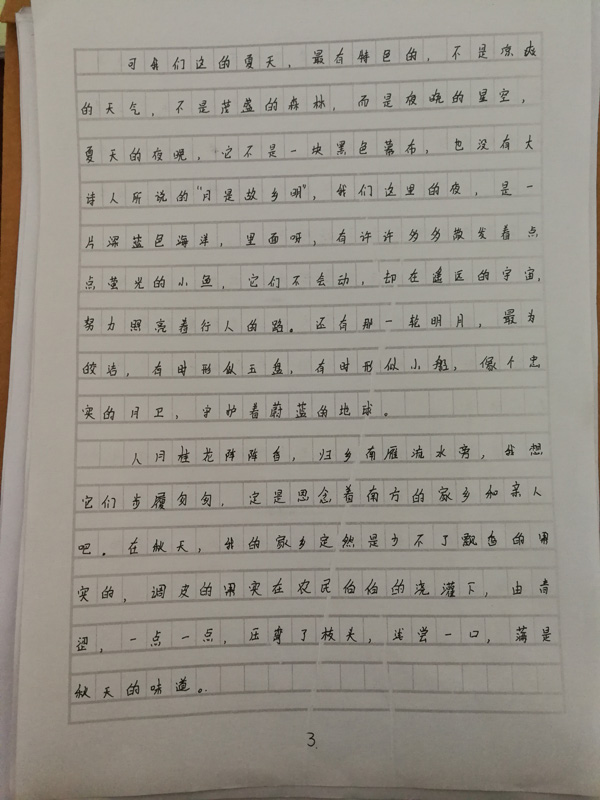 可我们这的夏天，最有特色的，不是凉爽
的天气，不是茂盛的森林，而是夜晚的星空，
夏天的夜晚，它不是一块黑色幕布，也没有大
诗人所说的“月是故乡明”，我们这里的夜，是一
片深蓝色海洋，里面呀，有许许多多散发着点
点萤光的小鱼，它们不会动，却在遥远的宇宙，
努力照亮着行人的路。还有那一轮明月，最为
皎洁，有时形似玉盘，有时形似小船，像个忠
实的月卫，守护着蔚蓝的地球。
人间桂花阵阵香，归乡南雁流水旁，我想
它们步履匆匆，定是思念着南方的家乡和亲人
吧。在秋天，我的家乡定然是少不了飘香的果
实的，调皮的果实在农民伯伯的浇灌下，由青
涩，一点一点，压弯了枝头，浅尝一口，满是
秋天的味道。
3